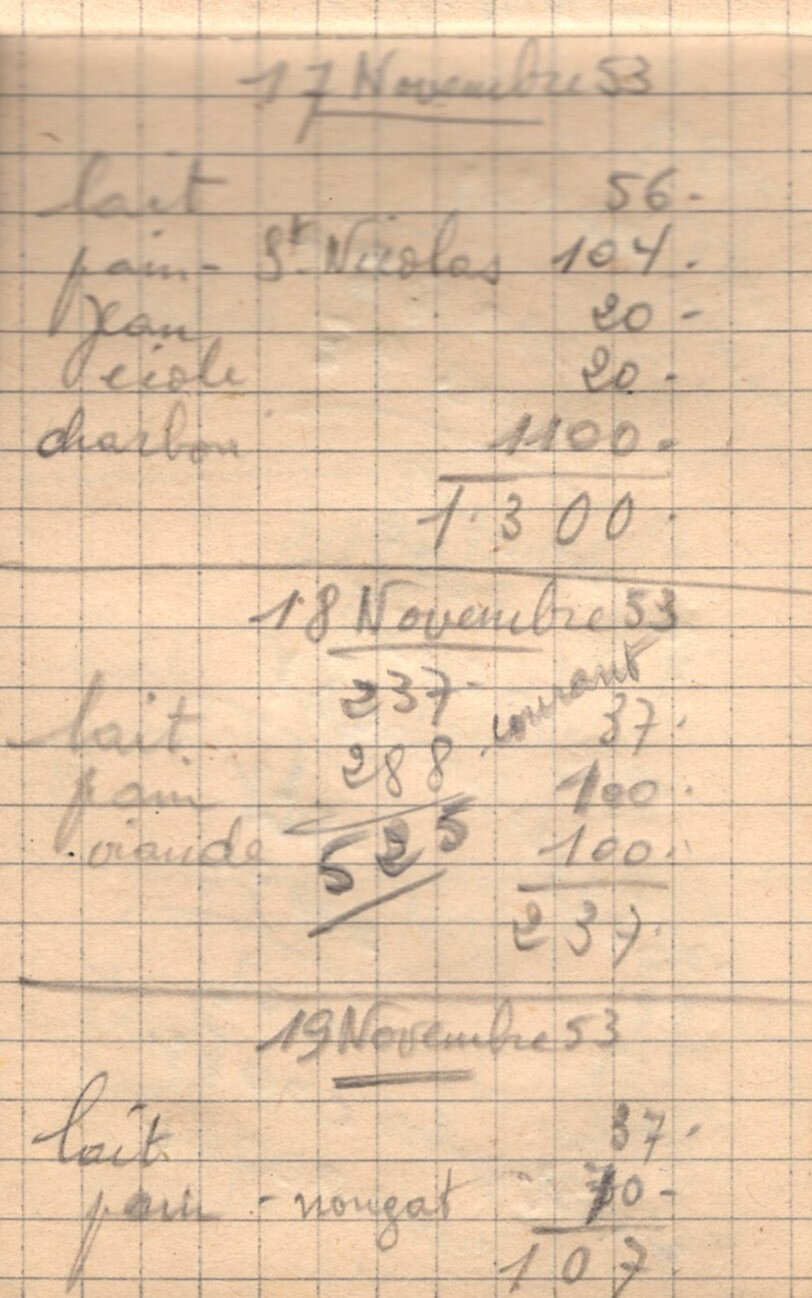 17 Novembre 53
lait 56.
pain - St. Nicolas 104.
Jean 20 -
école 20.
charbon 1100.
1.300.
18 Novembre 53
237
courant
lait 37.
288
pain 100.
viande 100.
525
237.
19 Novembre 53
lait 37.
pain - nougat 70 -
107.